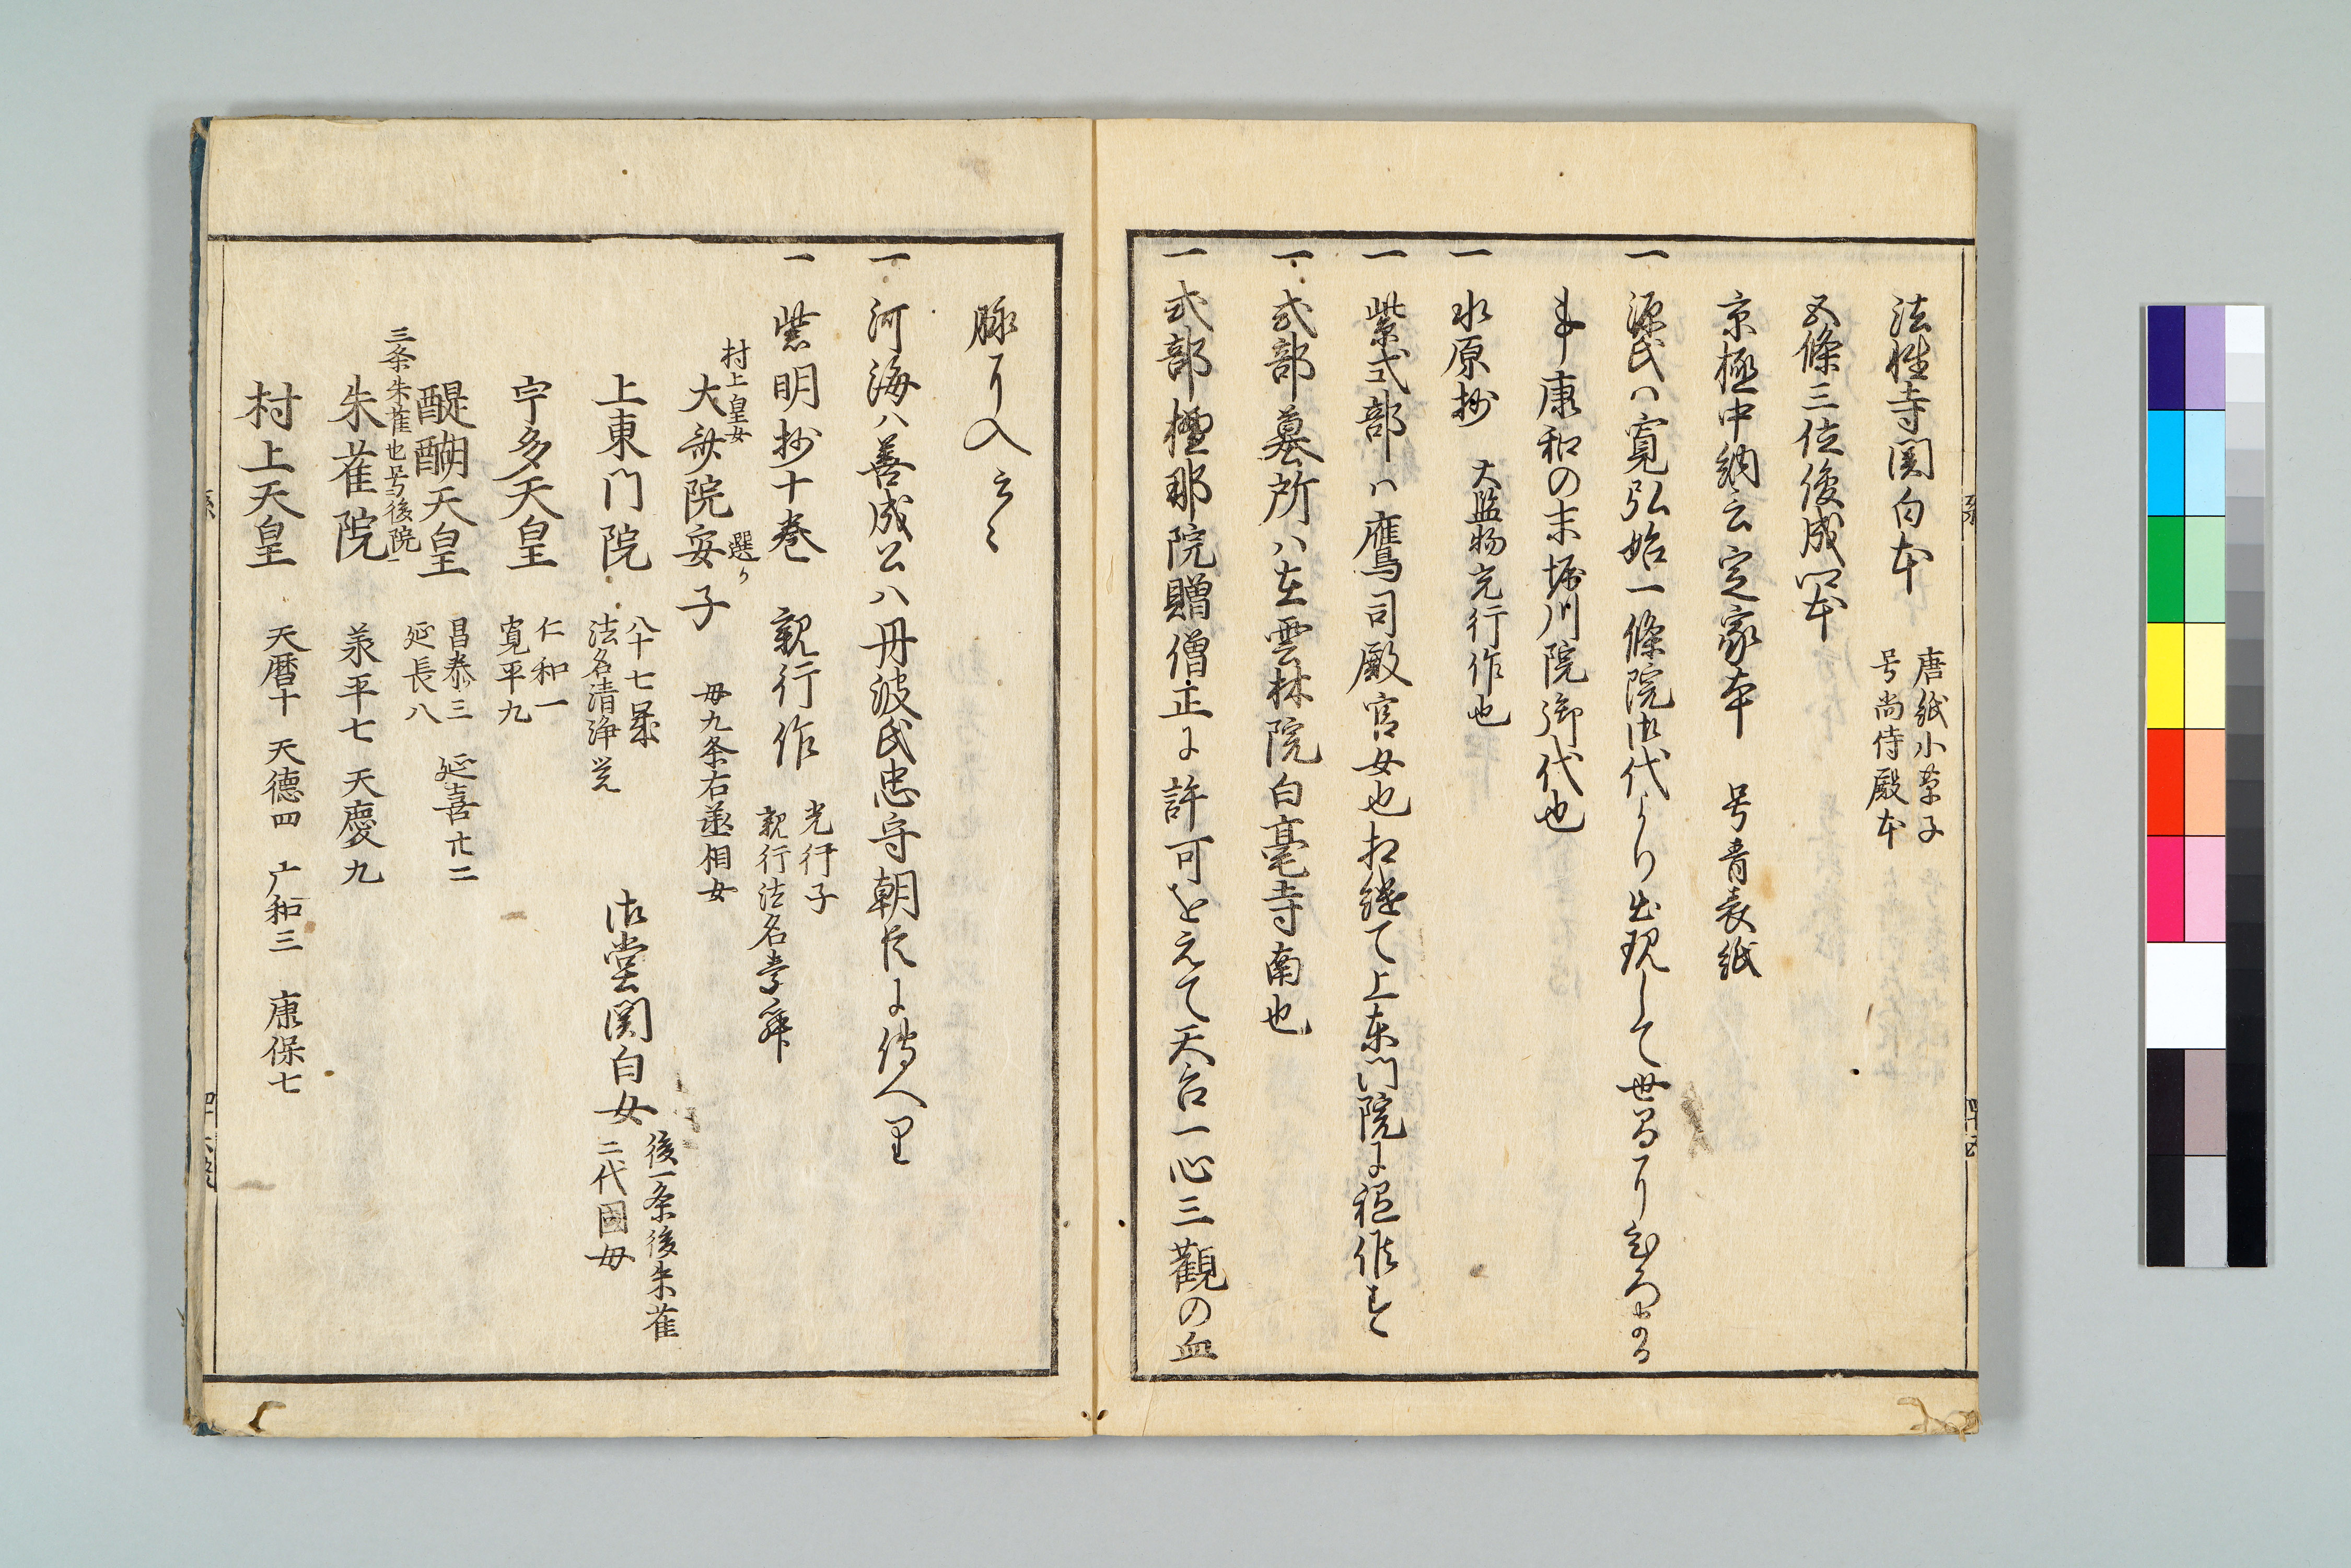 法性寺関白本 唐紙小草子
号尚侍殿本
五條三位俊成卿本
京極中納言定家本 号青表紙
一 源氏ハ寛弘始一條院御代より出現して世

康和の末堀川院御代也
一 水原抄 大監物光行作也
一 紫式部ハ鷹司殿官女也相継て上東門院に
一 式部墓所ハ在雲林院白毫寺南也
一 式部檀那院贈僧正に許可をえて天台一心三觀の血
脉に入云々
一 河海ハ善成公ハ丹波氏忠守朝臣に傳へ
一 紫明抄十巻 親行作 光行子
親行法名
村上皇女 選
大斎院 子 母九条右丞相女
上東門院 八十七崩
法名清浄覚 御堂関白女 後一条後朱雀
二代國母
宇多天皇 仁和一
寛平九
醍醐天皇 昌泰三 延喜廿二
延長八
三条朱雀也号後院
朱雀院 承平七 天慶九
村上天皇 天暦十 天徳四 応和三 康保七